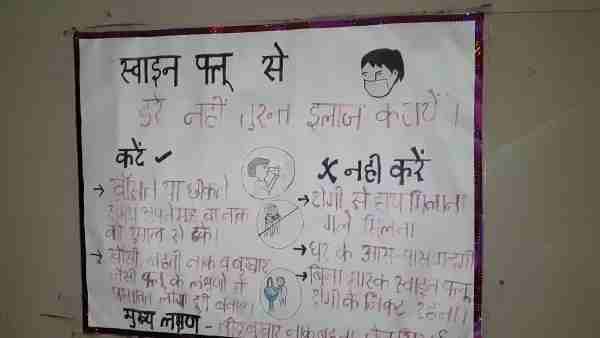 स्वाइन फ्लू से
डरे नहीं तुरन्त इलाज करायें ।
करें ✓
खाँसते या छींकते
समय अपने मुह वा नाक
को रुमाल से ढकें।
खाँसी, बहती नाक व बुखार
जैसे फ्लू के लक्षणों से
प्रभावित लोगों से दूरी
X नही करें
रोगी से हाथ मिलाना
गले मिलना
घर के आस-पास गन्दगी
बिना मास्क स्वाइन फ्लू
रोगी के निकट रहना।
मुख्य लक्षण - बुखार, नाक बहना